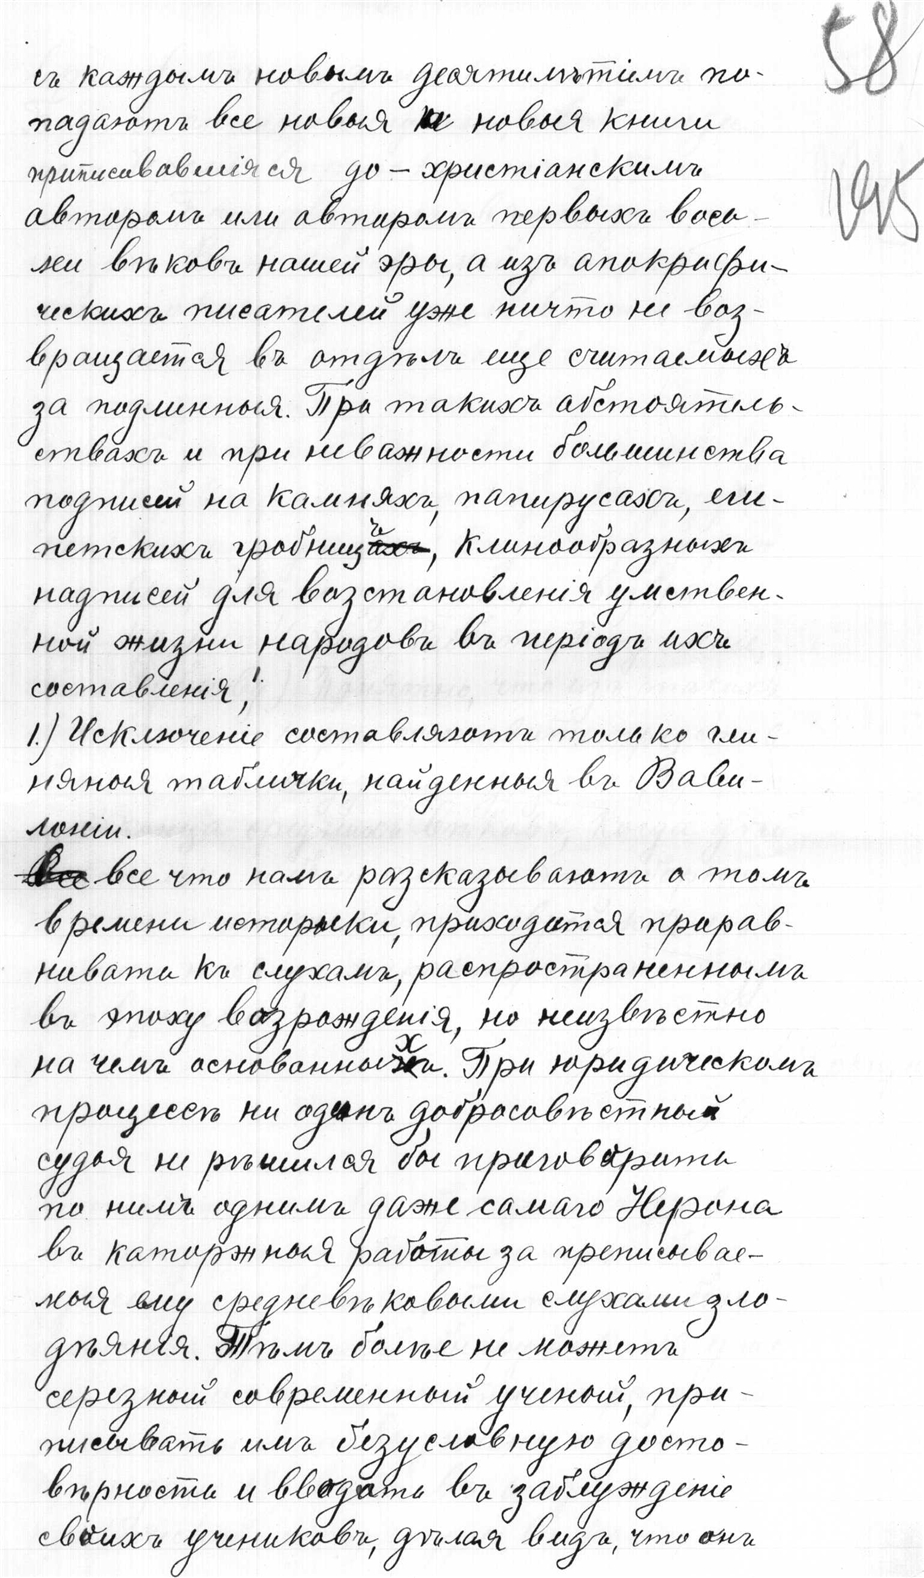 58
съ каждымъ новымъ десятилѣтіемъ по-
падаютъ все новыя и новыя книги
приписовавшіяся до-христіанскимъ
195
авторамъ или авторамъ первыхъ вось-
ми вѣковъ нашей эры, а изъ апокрифи-
ческихъ писателей уже ничто не воз-
вращается въ отдѣлъ еще считаемыхъ
за подлинныя. При такихъ обстоятель-
ствахъ и при неважности большинства
подписей на камняхъ, папирусахъ, еги-
петскихъ гробницъ, клинообразныхъ
надписей для возстановленія умствен-
ной жизни народовъ въ періодъ ихъ
составленія,¹
1.) Исключеніе составляютъ только гли-
няныя таблички, найденныя въ Вави-
лоніи.
все что намъ разсказываютъ о томъ
времени историки, приходится прирав-
нивать къ слухамъ, распространеннымъ
въ эпоху возрожденія, но неизвѣстно
на чемъ основанныхъ. При юридическомъ
процессѣ ни одинъ добросовѣстный
судья не рѣшился бы приговорить
по нимъ однимъ даже самаго Нерона
въ каторжныя работы за преписывае-
мыя ему средневѣковыми слухами зло-
дѣянія. Тѣмъ болѣе не можетъ
серезный современный ученый, при-
писывать имъ безусловную досто-
вѣрность и вводить въ заблужденіе
своихъ учениковъ, дѣлая видъ, что онъ